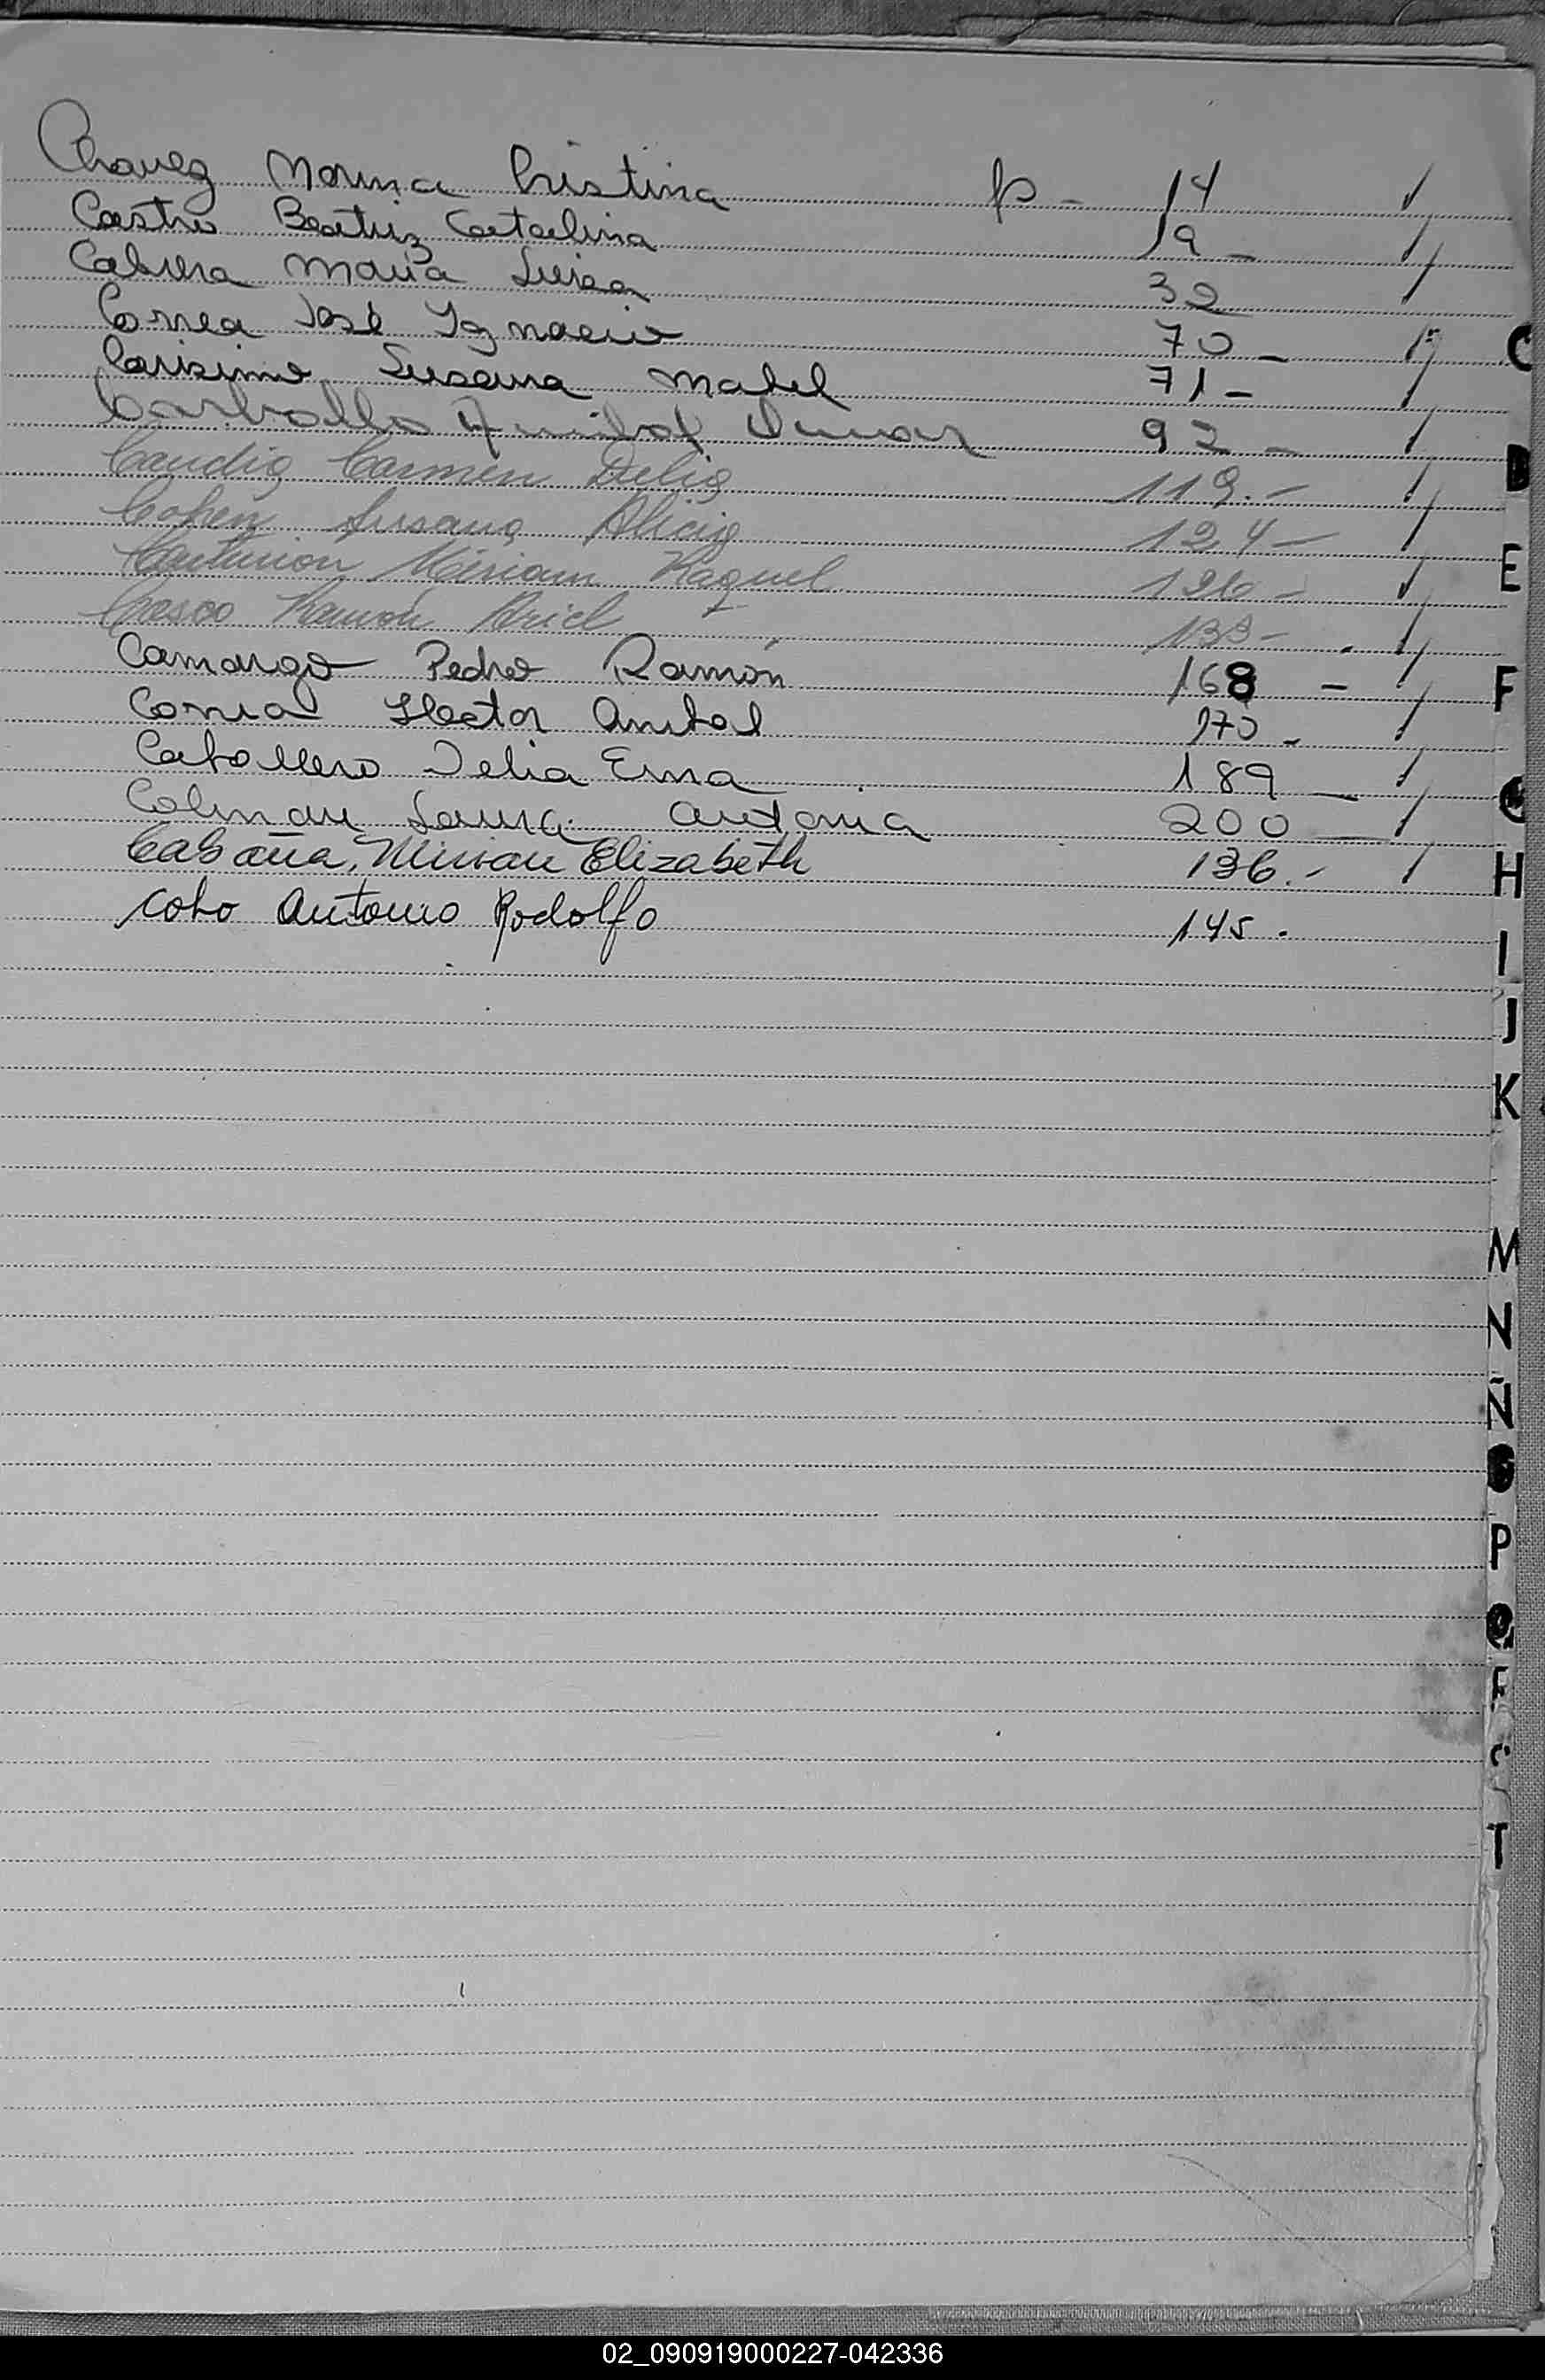 Chavez Norma Cristina fo - 14 ✓
Castro Beatriz Catalina 19 - ✓
Cabrera Maria Luisa 32 ✓
Correa José Ignacio 70 - ✓
Carisimo Susana Mabel 71 - ✓
Carballo Anibal Omar 92 - ✓
Candia Carmen Delia 119.- ✓
Cohen Susana Alicia 124 - ✓
Centurion Miriam Raquel ✓
Casco Ramón Ariel 133 - ✓
Camargo Pedro Ramón 168 - ✓
Correa Hector Anibal 170 - ✓
Caballero Delia Erna 189 - ✓
Colman Laura Antonia 200 - ✓
Cabaña, Mirian Elizabeth 136.- ✓
Coto Antonio Rodolfo 145.
C
D
E
F
H
I
J
K
M
N
Ñ
P
Q
T
02_090919000227-042336